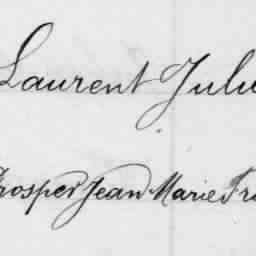 Laurent Jule
Prosper Jean Marie Fra